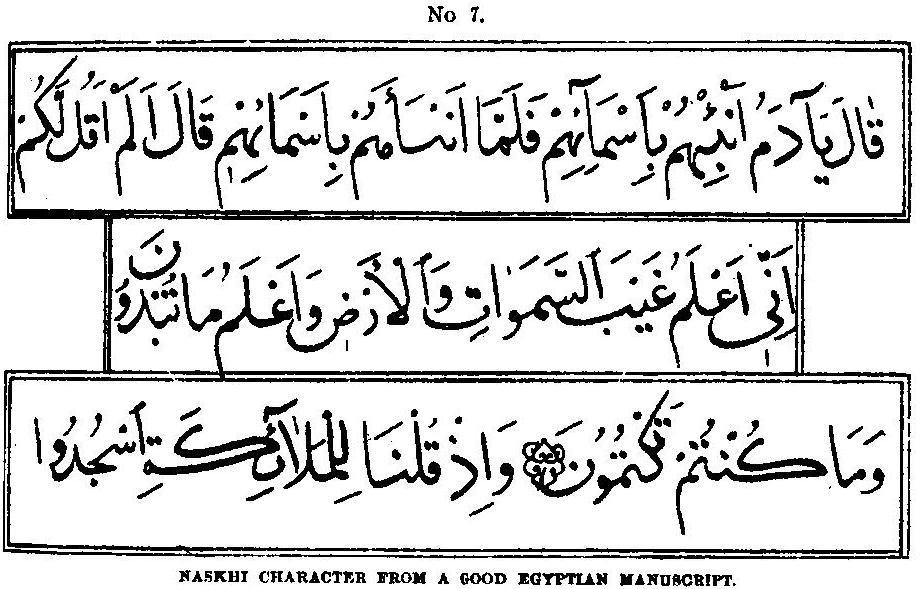 No 7.
قَالَ يَآدَمُ اَنْبِئْهُمْ بِاَسْمَآئِهِمْ فَلَمَّا اَنْبَأَهُمْ بِاَسْمَائِهِمْ قَالَ اَلَمْ اَقُلْ لَكُمْ
اِنِّي اَعْلَمُ غَيْبَ السَّمَوَاتِ وَالْاَرْضِ وَاَعْلَمُ مَا تُبْدُونَ
وَمَا كُنْتُمْ تَكْتُمُونَ وَاِذْ قُلْنَا لِلْمَلَآئِكَةِ اسْجُدُوا
NASKHI CHARACTER FROM A GOOD EGYPTIAN MANUSCRIPT.